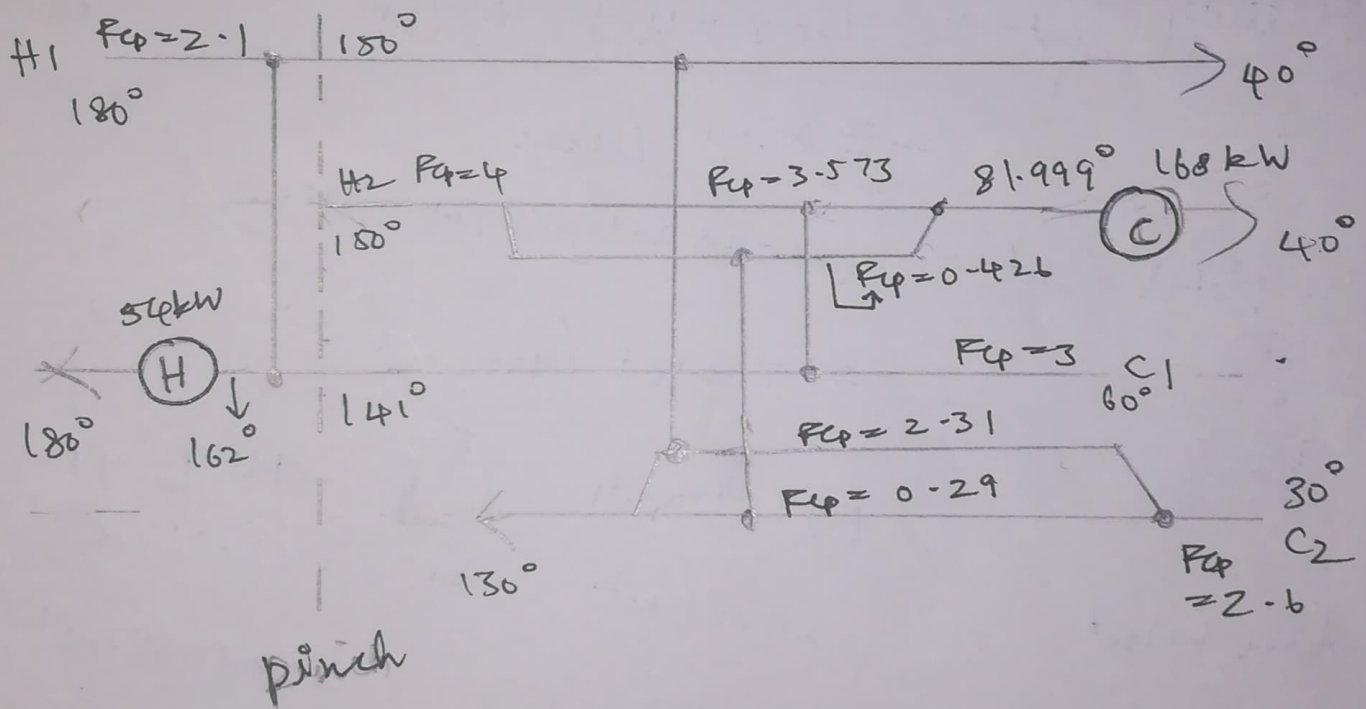 H1 Fcp=2.1 150° 40°
180°
H2 Fcp=4 Fcp=3.573 81.999° 168kW
150° C 40°
Fcp=0.426
54kW
H Fcp=3 C1
180° 162° 141° 60°
Fcp=2.31
Fcp=0.29 30°
C2
130° Fcp
=2.6
pinch